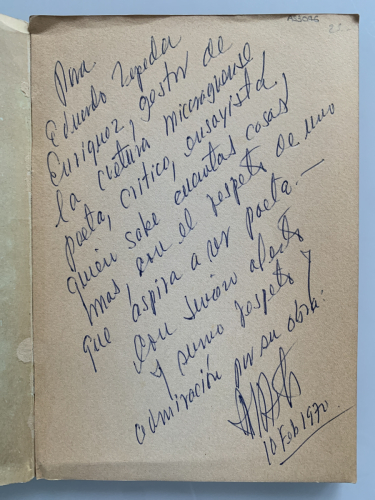 ALSORG
22.-
Para
Eduardo Zepeda
Enriquez, gestor de
la cultura nicaraguense
poeta, critico, ensayista,
quien sabe cuantas cosas
mas, con el respeto de uno
que aspira a ser poeta.—
Con sincero afecto
y sumo respeto y
admiración por su obra:
10 Feb 1970